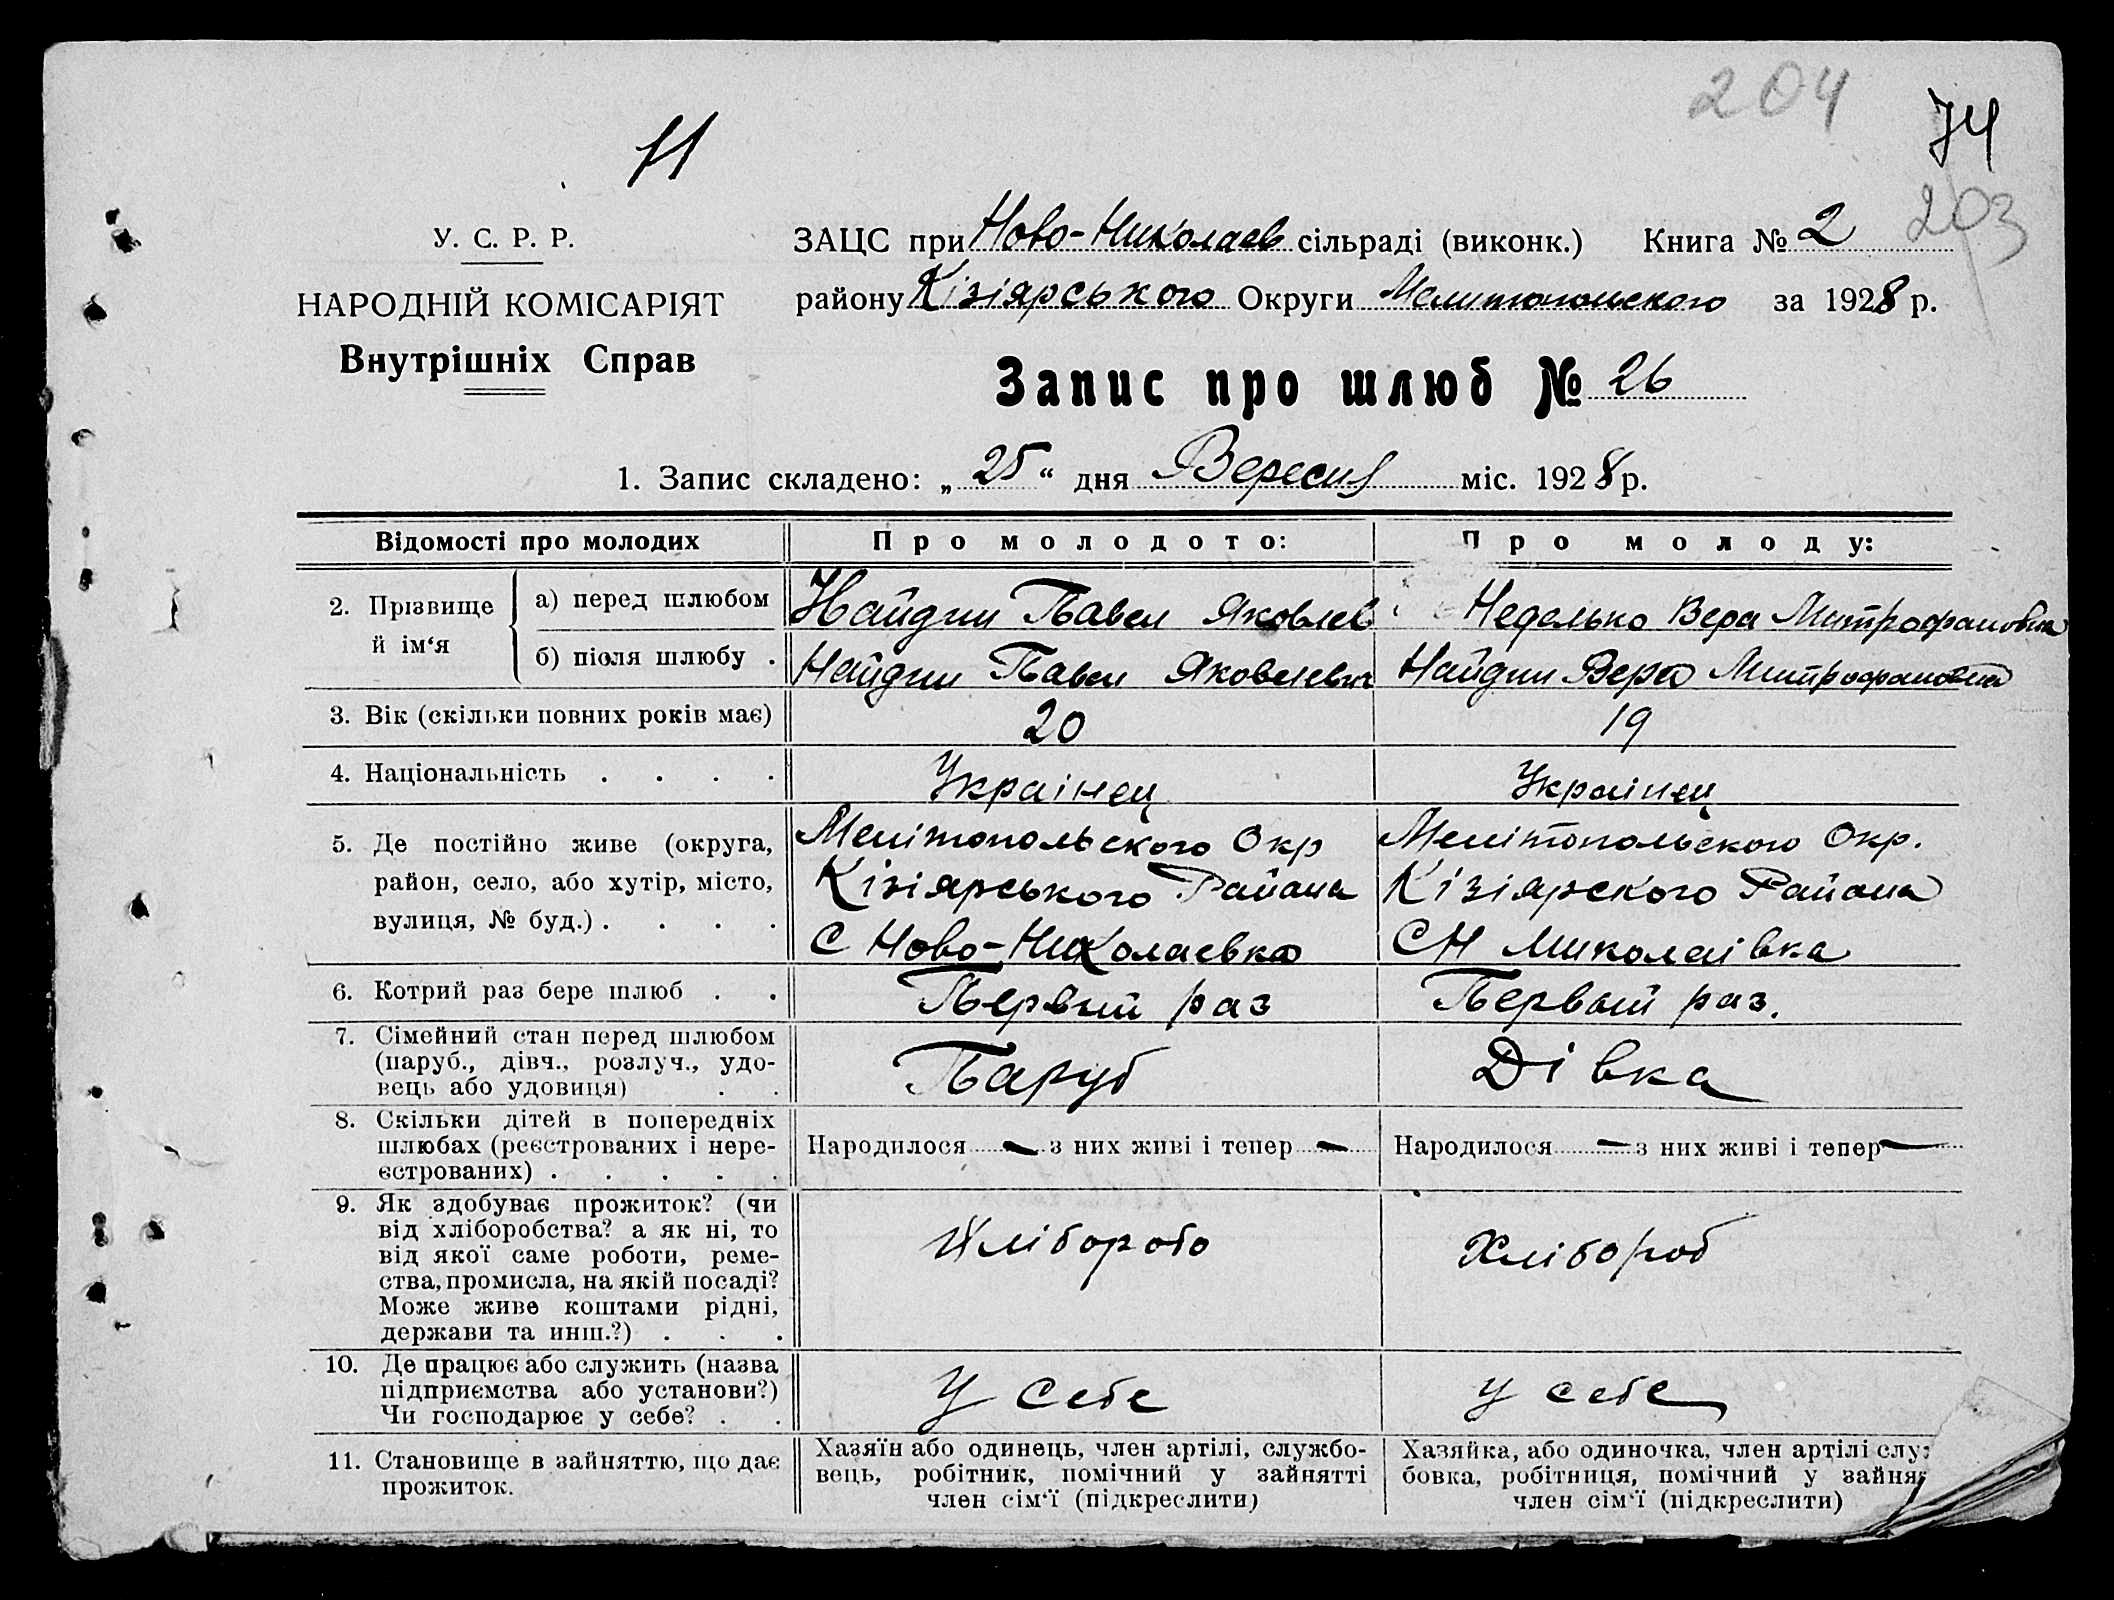 204
74
11
203
У. С. Р. Р.
НАРОДНІЙ КОМІСАРІЯТ
Внутрішніх Справ
ЗАЦС при Ново-Николаев сільраді (виконк.) Книга № 2
району Кізіярського Округи Мелитопольского за 1928 р.
Запис про шлюб № 26
1. Запис складено: „25“ дня Вересня міс. 1928 р.
Відомості про молодих
Про молодого:
Про молоду:
2. Прізвище й ім‘я
а) перед шлюбом
Найдин Павел Яковлев
Неделько Вера Митрофановна
б) після шлюбу .
Найдин Павел Яковлевич
Найдин Вера Митрофановна
3. Вік (скільки повних років має)
20
19
4. Національність . . . .
Украінец
Украінец
5. Де постійно живе (округа,
район, село, або хутір, місто,
вулиця, № буд.) . . . .
Мелітопольского Окр
Кізіярського Района
С Ново-Николаевка
Мелітопольского Окр.
Кізіярского Района
С Н Миколаівка
6. Котрий раз бере шлюб . .
Первий раз
Первый раз.
7. Сімейний стан перед шлюбом
(паруб., дівч., розлуч., удо-
вець або удовиця) . .
Паруб
Дівка
8. Скільки дітей в попередніх
шлюбах (реєстрованих і нере-
єстрованих) . . . . .
Народилося — з них живі і тепер —
Народилося — з них живі і тепер —
9. Як здобуває прожиток? (чи
від хліборобства? а як ні, то
від якої саме роботи, реме-
ства, промисла, на якій посаді?
Може живе коштами рідні,
держави та инш.?) . . .
Хлібороб
Хлібороб
10. Де працює або служить (назва
підприємства або установи?)
Чи господарює у себе? . .
У себе
У себе
11. Становище в зайняттю, що дає
прожиток.
Хазяїн або одинець, член артілі, службо-
вець, робітник, помічний у зайнятті
член сім‘ї (підкреслити)
Хазяйка, або одиночка, член артілі служ
бовка, робітниця, помічний у зайня
член сім‘ї (підкреслити)